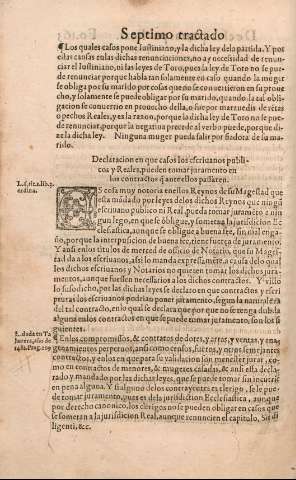 Septimo tractado
¶Los quales casos pone Iustiniano, y la dicha ley dela partida. Y por
estas causas enlas dichas renunciaciones, no ay necesidad de renun-
ciar el Iustiniano, ni las leyes de Toro, pues la ley de Toro no se pue-
de renunciar porque habla tan solamente en caso quando la muger
se obliga por su marido por cosas que no se conuertieron en su proue-
cho, y solamente se puede obligar por su marido, quando la tal obli-
gacion se conuertio en prouecho della, o fuese por marauedis de rétas
o pechos Reales, y es la razon, porque la dicha ley de Toro no se pue-
de renunciar, porque la negatiua precede al verbo puede, porque di-
ze la dicha ley. Ninguna muger pueda salir por fiadora de su ma-
rido.
Declaracion en que casos los escriuanos publi-
cos y Reales, pueden tomar juramento en
los contractos q̃ ante ellos passaren.
ES cosa muy notoria en estos Reynos de su Magestad que
esta mãdado por leyes delos dichos Reynos que ningũ
escriuano publico ni Real pueda tomar juramẽto a nin
gun lego, en que se obligue, y someta a la jurisdicion Ec
clesiastica, aunque se obligue a buena fee, sin mal enga-
ño, porque la interpusicion de buena fee, tiene fuerça de juramento.
Y ansi enlos titulos de merced de officio de Notario, que su Mages-
tad da a los escriuanos, assi lo manda expressamẽte, a causa delo qual
los dichos escriuanos y Notarios no quieren tomar los dichos jura-
mentos, aunque fuessen necessarios a los dichos contractos. Y visto
lo susodicho, por las dichas leyes se declara en que contractos y escri
pturas los escriuanos podrian poner juramento, segun la natura dela
del tal contracto, en lo qual se declara que por que no se tenga duda
alguna enlos contractos en que se puede tomar juramento, son los si
guientes.
¶En los compromissos, & contratos de dotes, y arras, y ventas, y ena
genamientos perpetuos, ansi como censos, fueros, y otros semejantes
contractos, y enlos en que para su validacion son menester jurar, co-
mo en contractos de menores, & mugeres casadas, & ansi esta decla-
rado y mandado por las dichas leyes, que se puede tomar sin incurrir
en pena alguna. Y si alguno delos contrayentes es clerigo, se le pue-
de tomar juramento, pues es dela jurisdicion Ecclesiastica, aunque
por derecho canonico, los clerigos no se pueden obligar en casos que
se sometan a la jurisdicion Real, aunque renuncien el capitulo, Si di
ligenti, &c.